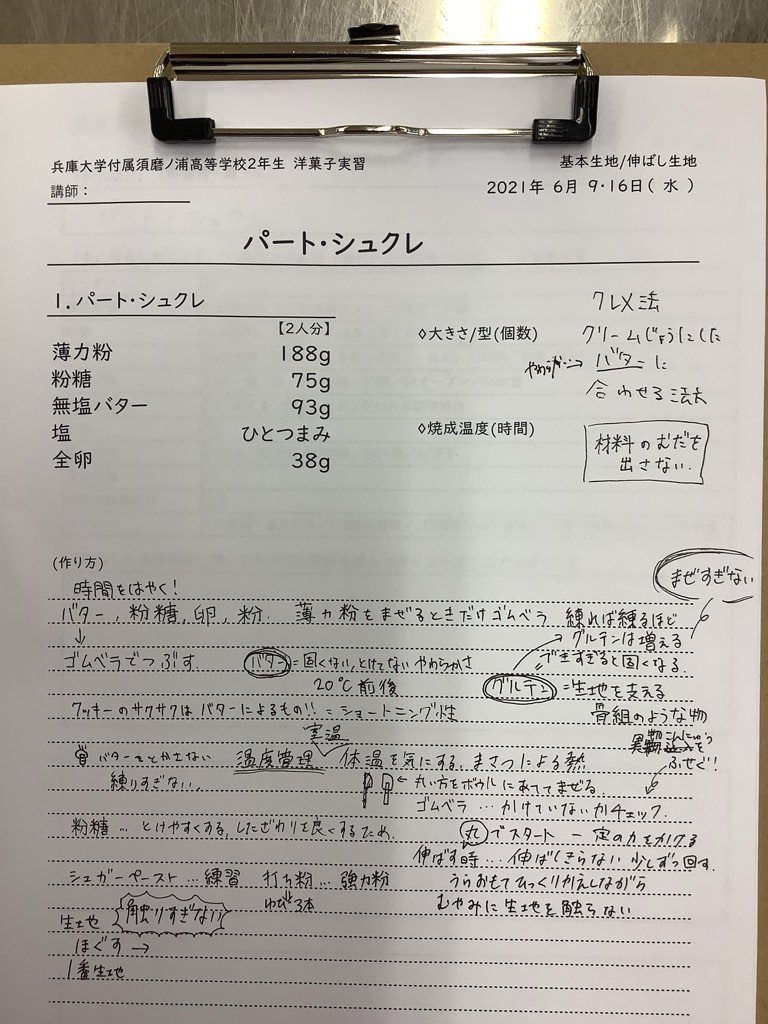 兵庫大学付属須磨ノ浦高等学校2年生 洋菓子実習
基本生地/伸ばし生地
講師：
2021年 6月 9・16日( 水 )
パート・シュクレ
1. パート・シュクレ
【2人分】
薄力粉 188g
粉糖 75g
無塩バター 93g
塩 ひとつまみ
全卵 38g
◊大きさ/型(個数)
◊焼成温度(時間)
クレメ法
クリームじょうにした
やわらかい→ バターに
合わせる法
材料のむだを
出さない.
(作り方)
まぜすぎない
時間をはやく！
バター, 粉糖, 卵, 粉. 薄力粉をまぜるときだけゴムベラ 練れば練るほど
↓ グルテンは増える
ゴムベラでつぶす. バター=固くない, とけてないやわらかさ できすぎると固くなる.
20℃前後 グルテン=生地を支える
クッキーのサクサクはバターによるもの!! = ショートニング性 骨組のような物
室温 異物こんにゅうを
バターをとかさない 温度管理 体温を気にする, まさつによる熱 ふせぐ!!
練りすぎない, ←丸い方をボウルにあててまぜる.
ゴムベラ…かけていないかチェック.
粉糖…とけやすくする, したざわりを良くするため. 丸でスタート 一定の力をかける
伸ばす時…伸ばしきらない 少しずつ回す.
シュガーペースト…練習 打ち粉…強力粉 うらおもてひっくりかえしながら
ゆび3本 むやみに生地を触らない
生地 触りすぎない
ほぐす→
1番生地